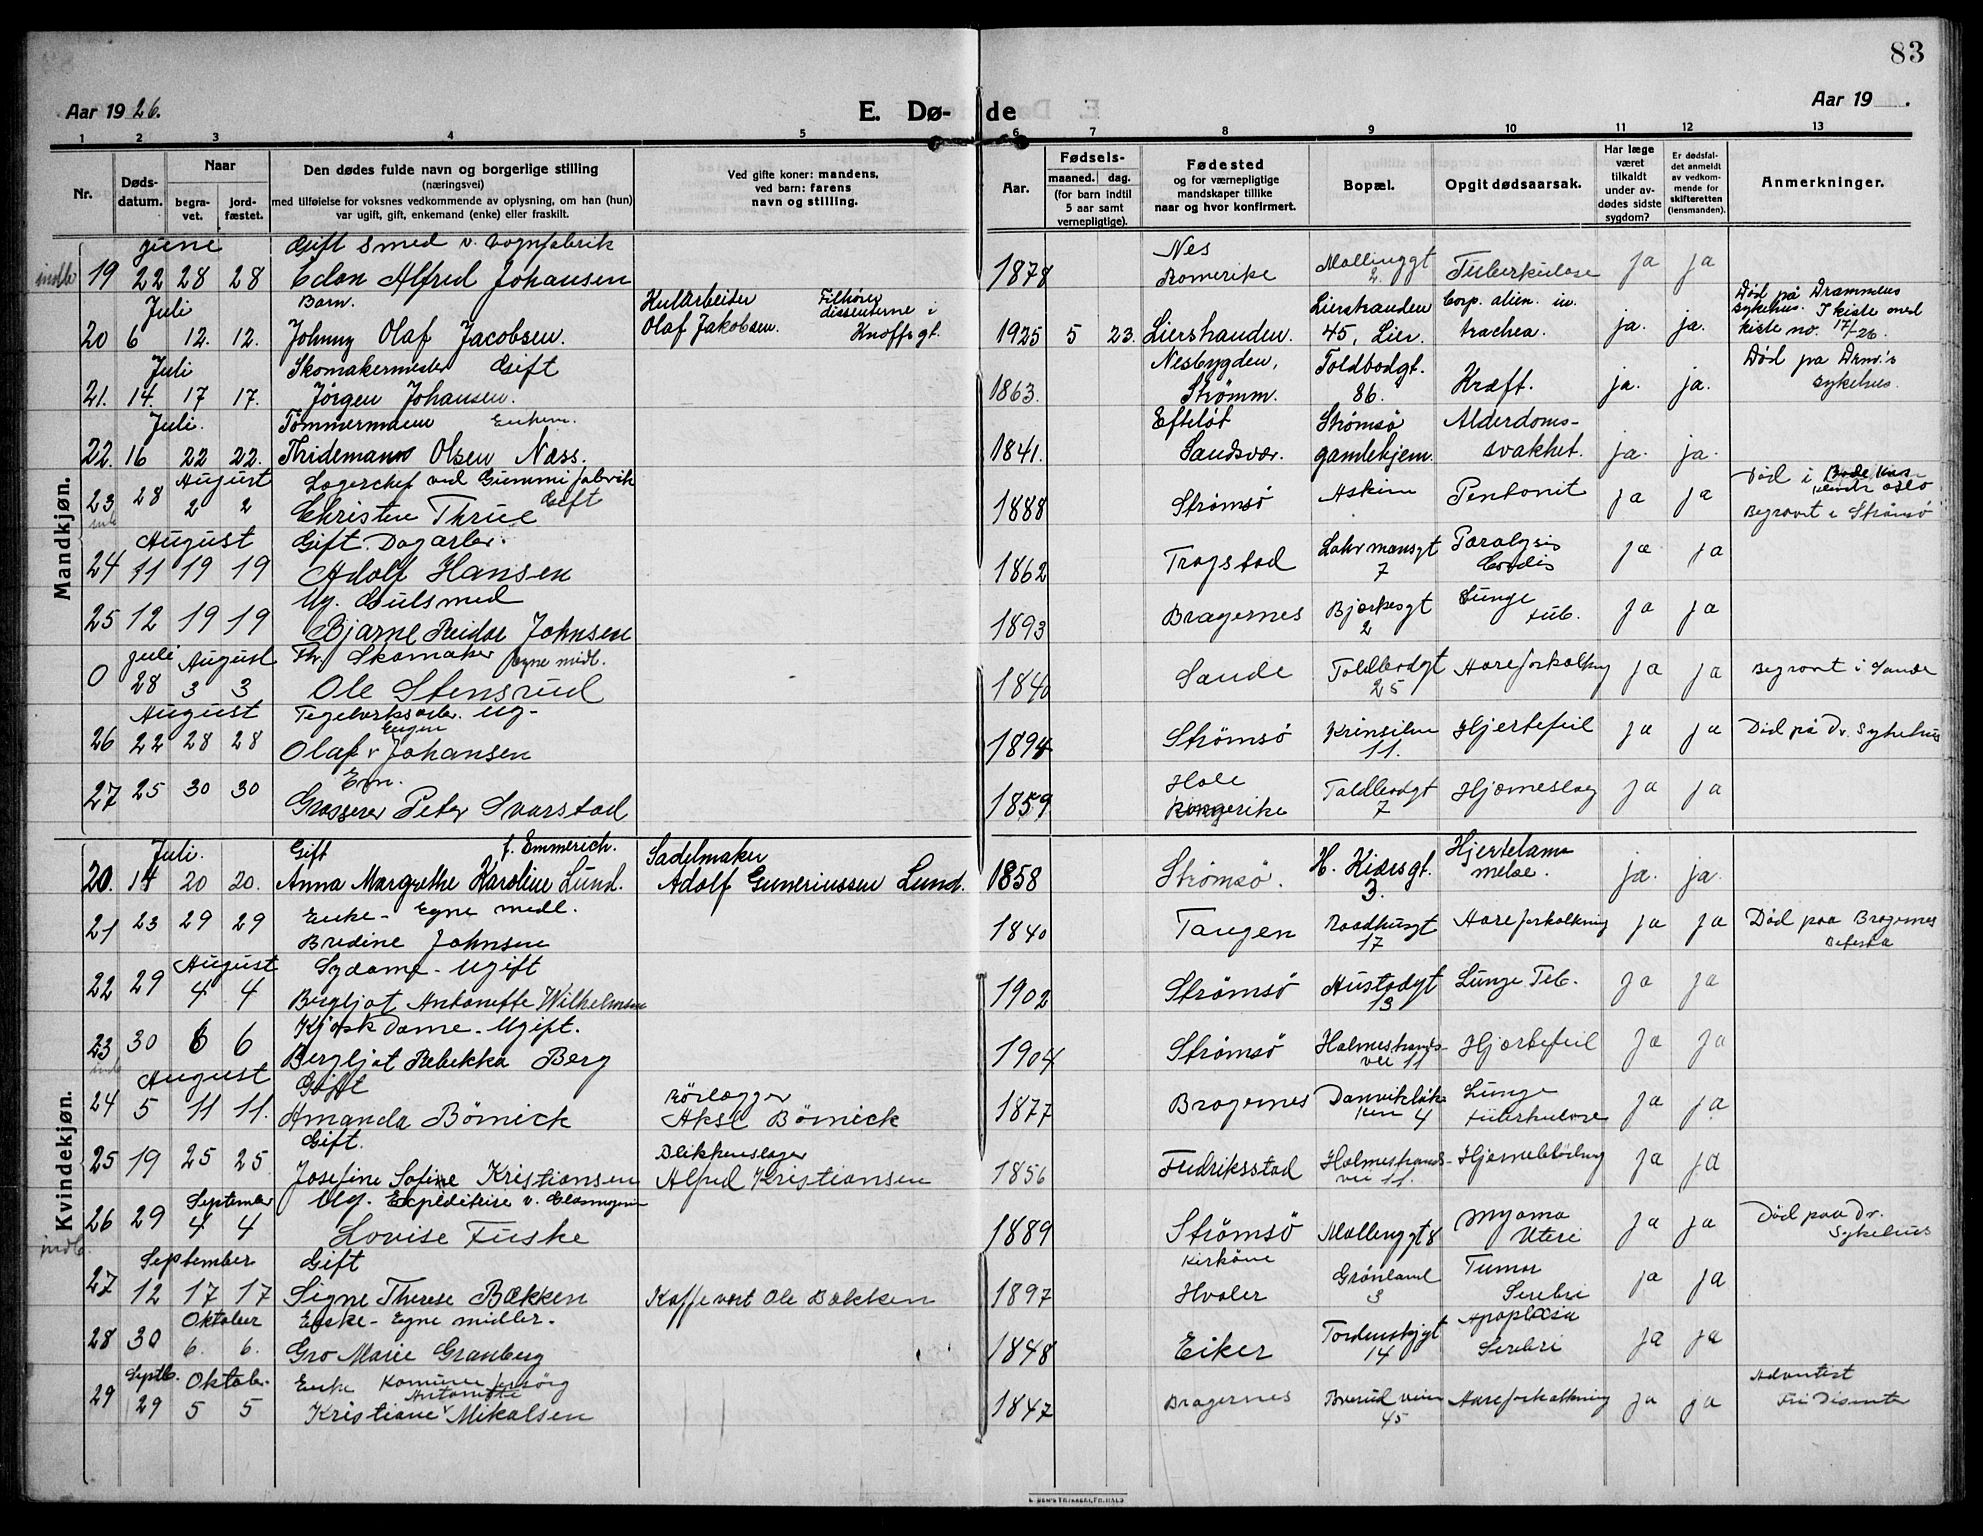 83
Aar 1926.
E. Dø- de
Aar 19 .
1 2 3 4 5 6 7 8 9 10 11 12 13
Nr.
Døds-datum.
Naar
begra-vet.
jord-fæstet.
Den dødes fulde navn og borgerlige stilling
(næringsvei)
med tilføielse for voksnes vedkommende av oplysning, om han (hun)
var ugift, gift, enkemand (enke) eller fraskilt.
Ved gifte koner: mandens,
ved barn: farens
navn og stilling.
Aar.
Fødsels-
maaned. dag.
(for barn indtil
5 aar samt
vernepligtige).
Fødested
og for værnepligtige
mandskaper tillike
naar og hvor konfirmert.
Bopæl.
Opgit dødsaarsak.
Har læge
været
tilkaldt
under av-
dødes sidste
sygdom?
Er dødsfal-
det anmeldt
av vedkom-
mende for
skifteretten
(lensmanden).
Anmerkninger.
Mandkjøn.
Gift Smed v. Vognfabrik Nes Mallinggt
19 22 28 28 Edon Alfred Johansen 1878 Romerike 2 Tuberkulose ja ja
Juli Barn. Tilhører dissenterne i Knoffsgt. Lierstranden Corp. alien. in. Død på Drammens sykehus. I kiste med
20 6 12. 12. Johnny Olaf Jacobsen. Olaf Jakobsen. 1925 5 23. Lierstranden. 45, Lier. trachea. ja. ja. kiste no. 17/-26.
Juli Skomakermester Gift Nesbygden, Toldbodgt. Død på Drm.'s
21. 14. 17 17. Jørgen Johansen. 1863. Strømm. 86. Kræft. ja. ja. sykehus.
Juli. Tømmermann Enkem. Efteløt Strømsø Alderdoms-
22. 16 22 22. Thidemann Olsen Næss. 1841. Sandsvær. gamlehjem. svakhet. ja. ja.
August Lagerchef ved Gummifabrik Gift Død i
23 28 2 2 Christen Thrue 1888 Strømsø Askim ja ja Oslo Begravet i Strømsø
August Gift. Dagarb. Paralysis
24 11 19 19 Adolf Hansen 1862 Trøgstad 7 Cordis ja ja
Ug. Gulsmed Bjerkesgt Lunge
25 12 19 19 Bjarne Reidar Johnsen 1893 Bragernes 2 tub. ja ja
Juli August Fhr. Skomaker egne midl. Toldbodgt
0 28 3 3 Ole Stensrud 1840 Sande 25 Aareforkalkng ja ja Begravet i Sande
August Teglverksarb. Ug- Eugen
26 22 28 28 Olaf v Johansen 1894 Strømsø 11. Hjertefeil ja ja Død på Dr. Sykehus
Em. Hole Toldbodgt
27 25 30 30 Grosserer Peter Svarstad 1859 Ringerike 7 Hjerneslag ja ja
Kvindekjøn.
Juli. Gift f. Emmerich. Sadelmaker H. Kiærsgt. Hjertelam-
20. 14 20 20. Anna Margrethe Karoline Lund. Adolf Guneriussen Lund. 1858 Strømsø. 3. melse. ja. ja.
Enke - Egne midl. Raadhusgt Død paa Bragernes
21 23 29 29 Bredine Johnsen 1840 Tangen 17 Aareforkalkning ja ja
August Sydame - Ugift
22 29 4 4 Bergljot Antonette Wilhelmsen 1902 Strømsø 13 Lunge Tub. ja ja
Kjosk Dame - Ugift. Holmestrands-
23 30 6 6 Bergljot Rebekka Berg 1904 Strømsø vei 11 Hjertefeil ja ja
August Gift Rørlegger Lunge
24 5 11 11. Amanda Børnick Aksel Børnick 1877 Bragernes 4 tuberkulose ja ja
Gift. Blikkenslager Holmestrands-
25 19 25 25 Josefine Sofine Kristiansen Alfred Kristiansen 1856 Fredriksstad vei 11. Hjerneblødning ja ja
September Ug. Expeditrise v. Glasmagasin Myoma Død paa Dr.
26 29 4 4 Lovise Fuske 1889 Strømsø Mallinggt 8 Uteri ja ja Sykehus
indb.
September Gift Kirkøne Grønland Tumor
27 12 17 17 Signe Therese Bækken Kaffevert Ole Bækken 1897 Hvaler 3 Serebri ja ja
Oktober Enke - Egne midler. Tordenskjgt Apoplexia
28 30 6. 6. Gro Marie Granberg 1848 Eiker 14 Serebri ja ja
Septb. Oktober Enke Komune forsørg Antonette Adventist
29 29 5 5 Kristiane v Mikalsen 1847 Bragernes 45 Aareforkalkning ja ja Fri Disenter